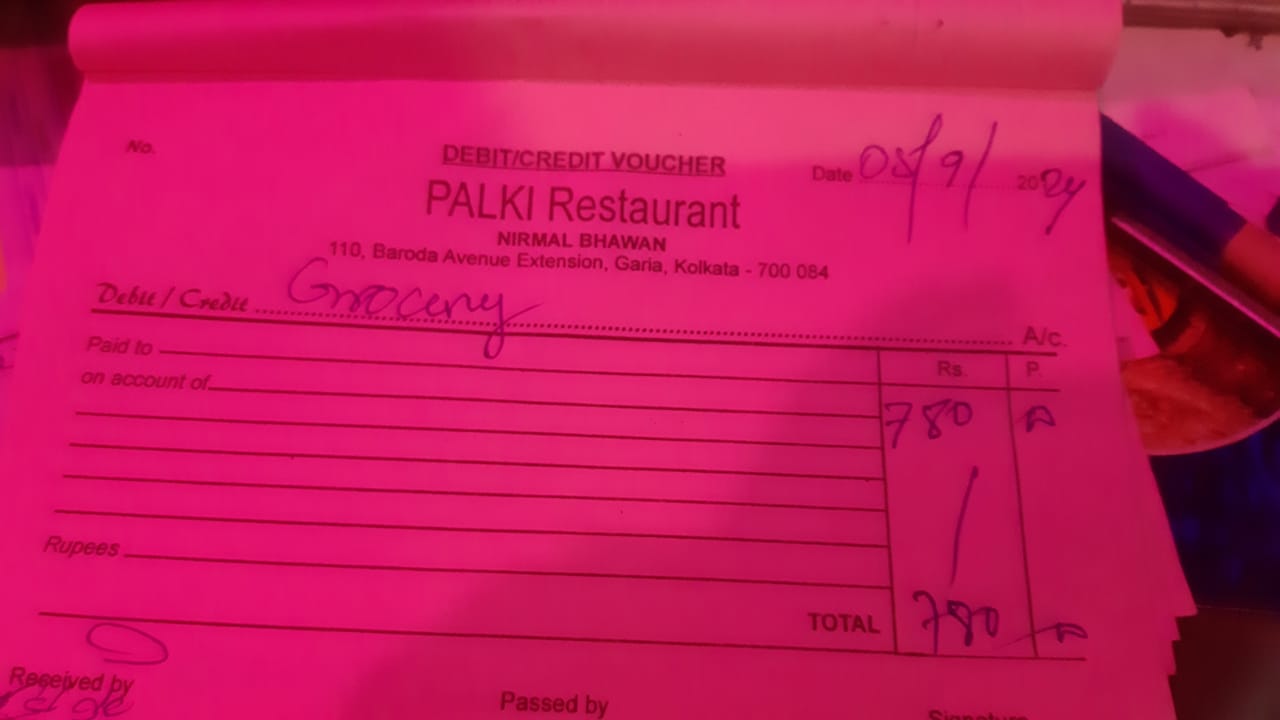 No.
DEBIT/CREDIT VOUCHER
Date 05/9/ 2024
PALKI Restaurant
NIRMAL BHAWAN
110, Baroda Avenue Extension, Garia, Kolkata - 700 084
Debit / Credit Grocery A/c.
Paid to Rs. P.
on account of
780
Rupees
TOTAL 780
Received by
Passed by
Signature